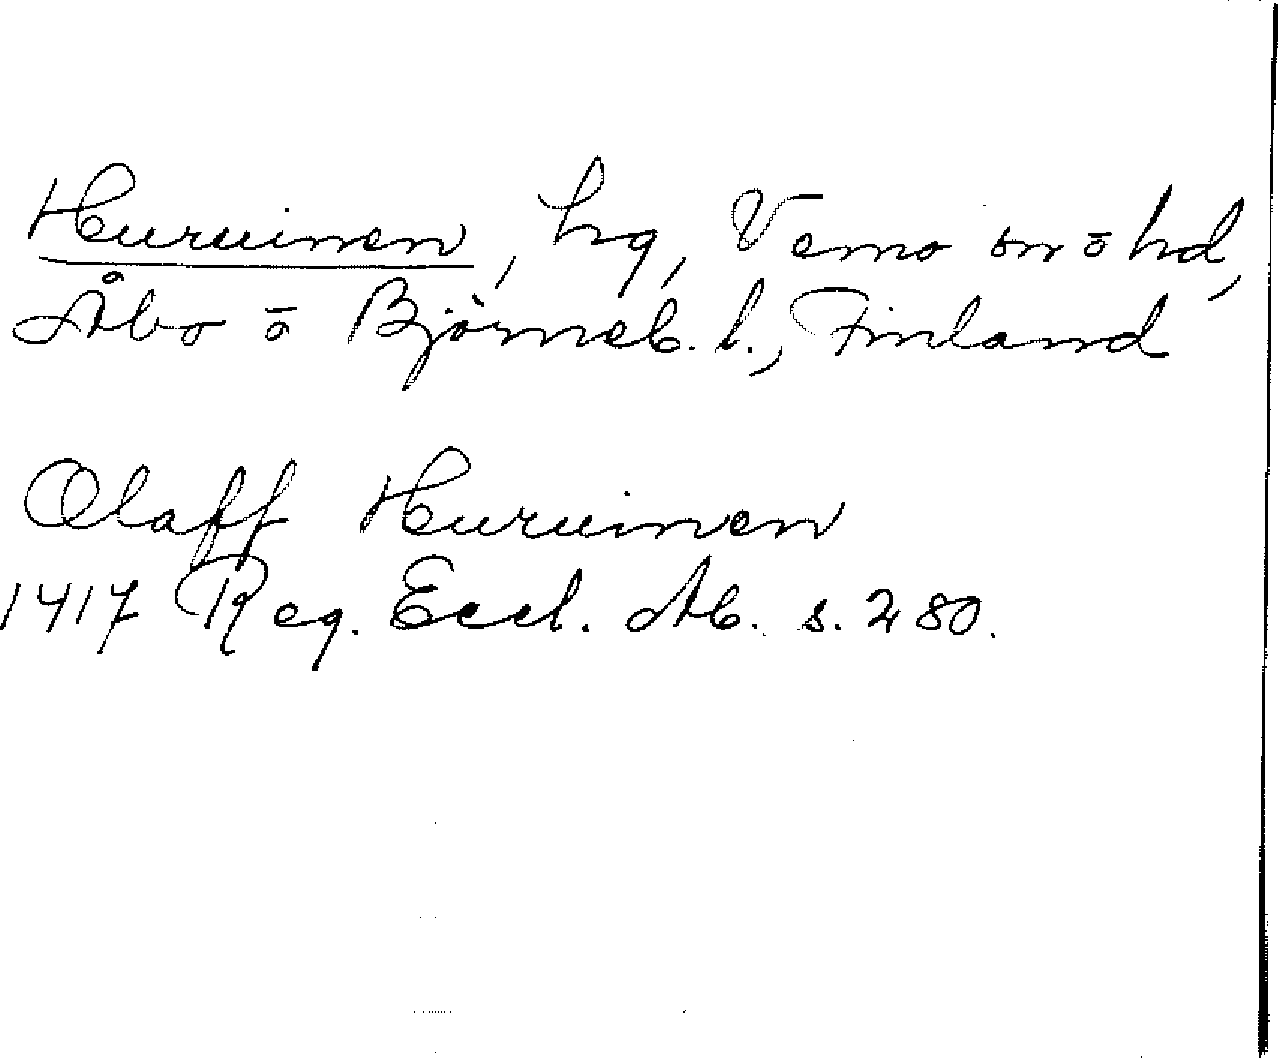 Heuruinen, hg, Vemo sn o hd,
Åbo o Björneb. l., Finland
Olaff Heuruinen
1417 Reg. Eccl. Ab. s. 280.